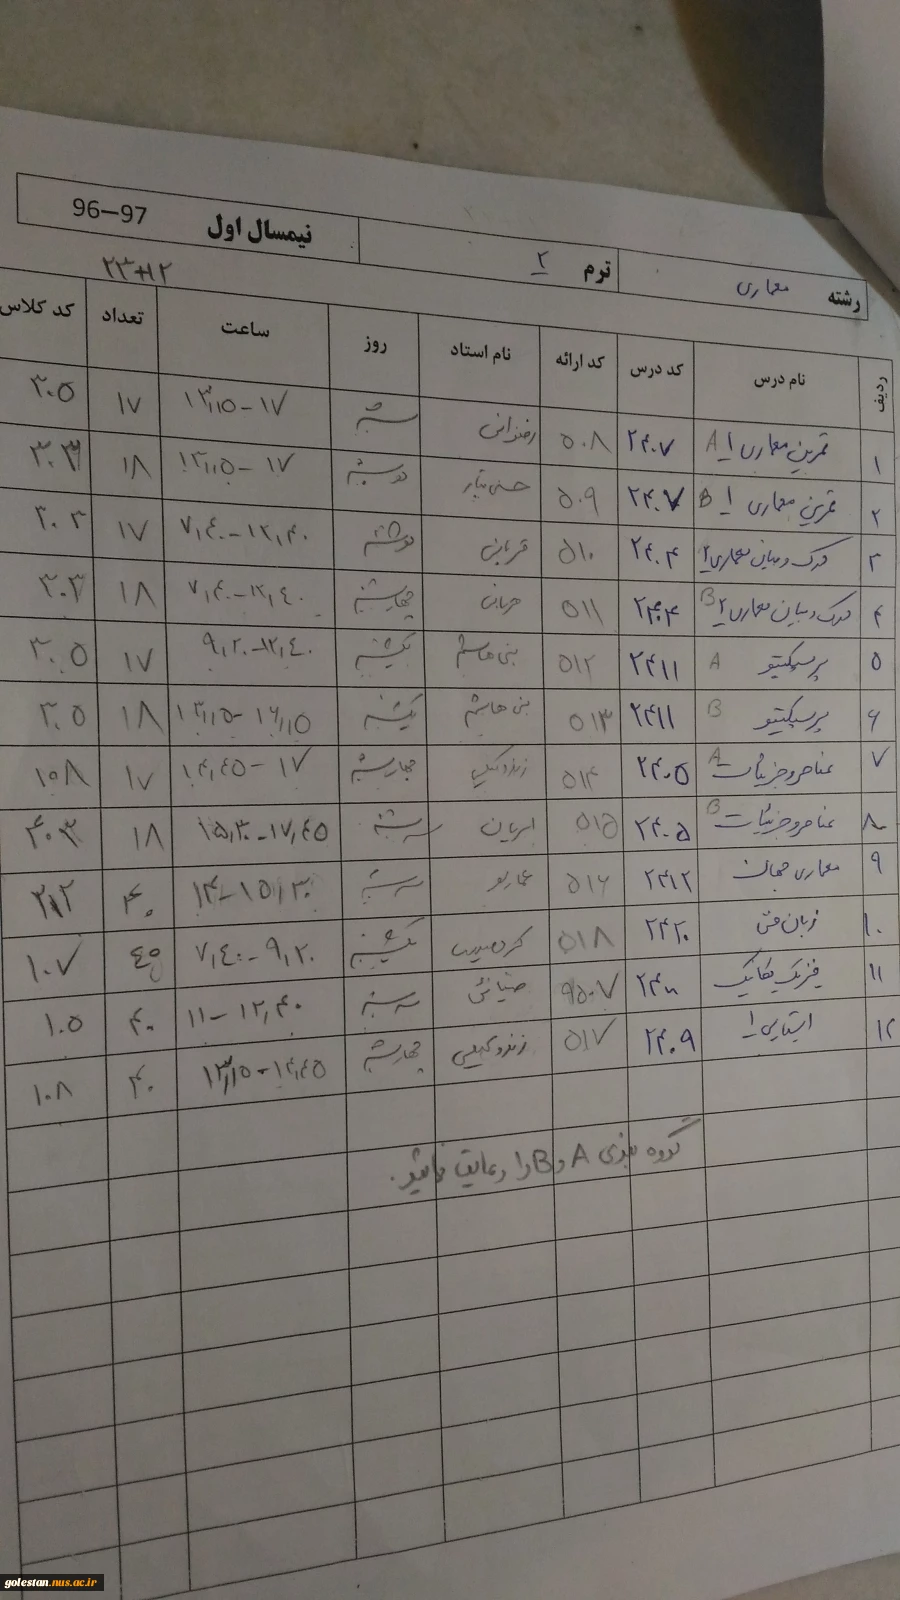 رشته معماری ترم ۲ نیمسال اول 96-97
۲۳+۱۲
ردیف نام درس کد درس کد ارائه نام استاد روز ساعت تعداد کد کلاس
۱ تمرین معماری ۱ A ۲۴۰۷ ۵۰۸ شنبه ۱۳,۱۵-۱۷ ۱۷ ۳۰۵
۲ تمرین معماری ۱ B ۲۴۰۷ ۵۰۹ دوشنبه ۱۳,۱۵-۱۷ ۱۸ ۳۰۳
۳ درک و بیان معماری ۲ ۲۴۰۴ ۵۱۰ قربانی دوشنبه ۷,۴۰-۱۲,۴۰ ۱۷ ۳۰۲
۴ درک و بیان معماری ۲ B ۲۴۰۴ ۵۱۱ چهارشنبه ۷,۴۰-۱۲,۴۰ ۱۸ ۳۰۳
۵ پرسپکتیو A ۲۴۱۱ ۵۱۲ بنی هاشم یکشنبه ۹,۲۰-۱۲,۴۰ ۱۷ ۳۰۵
۶ پرسپکتیو B ۲۴۱۱ ۵۱۳ بنی هاشم یکشنبه ۱۳,۱۵-۱۶,۱۵ ۱۸ ۳۰۵
۷ عناصر و جزئیات A ۲۴۰۵ ۵۱۴ چهارشنبه ۱۴,۴۵-۱۷ ۱۷ ۱۰۸
۸ عناصر و جزئیات B ۲۴۰۵ ۵۱۵ سه شنبه ۱۵,۳۰-۱۷,۴۵ ۱۸ ۴۰۳
۹ معماری جهان ۲۴۱۲ ۵۱۶ سه شنبه ۱۴-۱۵,۳۰ ۴۰
۱۰ زبان فنی ۲۴۲۰ ۵۱۸ یکشنبه ۷,۴۰-۹,۲۰ ۱۰۷
۱۱ فیزیک مکانیک ۹۵۰۷ ضیائی سه شنبه ۱۱-۱۲,۴۰ ۴۰ ۱۰۵
۱۲ ایستایی ۱ ۲۴۰۹ ۵۱۷ چهارشنبه ۱۳,۱۵-۱۴,۴۵ ۴۰ ۱۰۸
گروه بندی A و B را رعایت نمائید.
golestan.nus.ac.ir